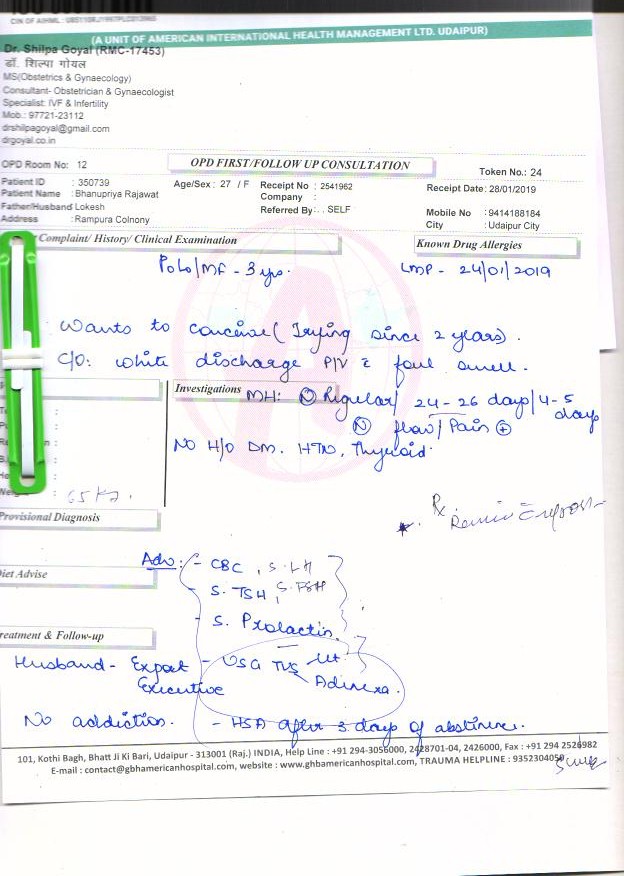 (A UNIT OF AMERICAN INTERNATIONAL HEALTH MANAGEMENT LTD. UDAIPUR)
Dr. Shilpa Goyal (RMC-17453)
डॉ. शिल्पा गोयल
MS(Obstetrics & Gynaecology)
Consultant- Obstetrician & Gynaecologist
Specialist: IVF & Infertility
Mob.: 97721-23112
drshilpagoyal@gmail.com
drgoyal.co.in
OPD Room No: 12
OPD FIRST/FOLLOW UP CONSULTATION
Token No.: 24
Patient ID : 350739 Age/Sex: 27 / F Receipt No : 2541962 Receipt Date: 28/01/2019
Patient Name : Bhanupriya Rajawat Company :
Father/Husband Lokesh Referred By: . . SELF Mobile No : 9414188184
Address : Rampura Colnony City : Udaipur City
Complaint/ History/ Clinical Examination
Known Drug Allergies
P0L0/MF - 3 yrs.
LMP - 24/01/2019
Wants to conceive (Trying since 2 years).
C/O: white discharge P/V c̄ foul smell.
Investigations
MH: (N) Regular/ 24 - 26 days/ 4-5 days
(N) flow/ Pain ⊕
NO H/O DM. HTN, Thyroid.
65 Kg.
Provisional Diagnosis
Rx
Adv: - CBC, S. LH
Diet Advise
- S. TSH, S. FSH
- S. Prolactin
Treatment & Follow-up
Husband - Export Executive
- USG TVS Ut
Adinexa.
No addiction.
- HSA after 3 days of abstinence.
101, Kothi Bagh, Bhatt Ji Ki Bari, Udaipur - 313001 (Raj.) INDIA, Help Line : +91 294-3056000, 2428701-04, 2426000, Fax : +91 294 2526982
E-mail : contact@gbhamericanhospital.com, website : www.gbhamericanhospital.com, TRAUMA HELPLINE : 9352304050